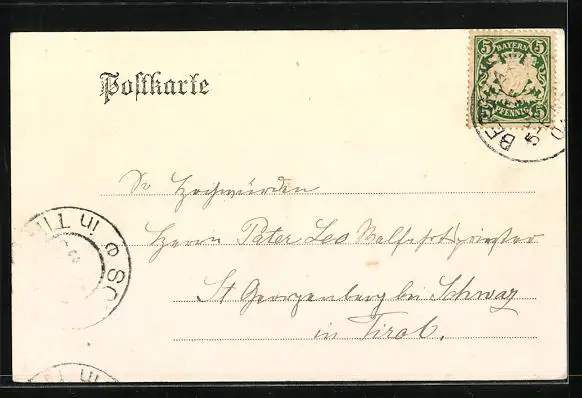 Postkarte
5 BAYERN 5
5 PFENNIG 5
BER
Sr Hochwürden
Herrn Pater Leo Wallfahrtspriester
St Georgenberg bei Schwaz
in Tirol.
in TI
e SC
in